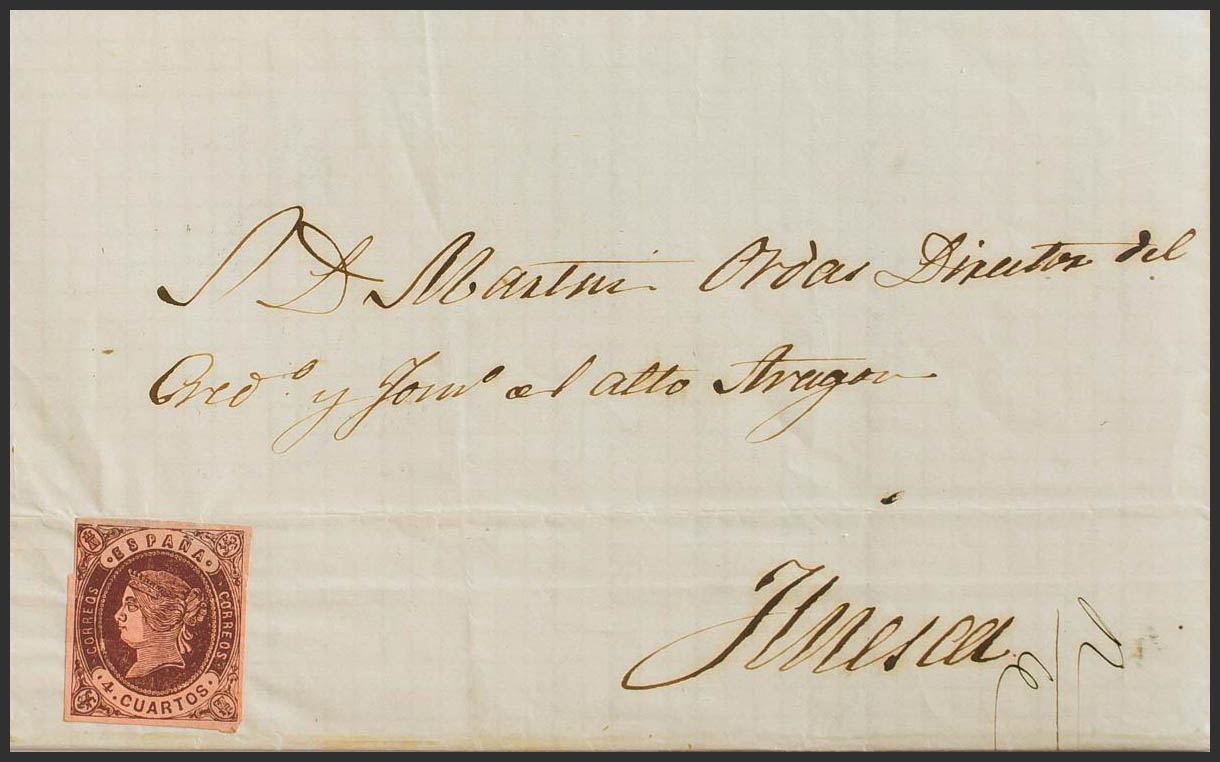 S D Martin Ordas Director del
Cred.º y Fomº del alto Aragon
Huesca
ESPAÑA
CORREOS
CORREOS
4. CUARTOS.